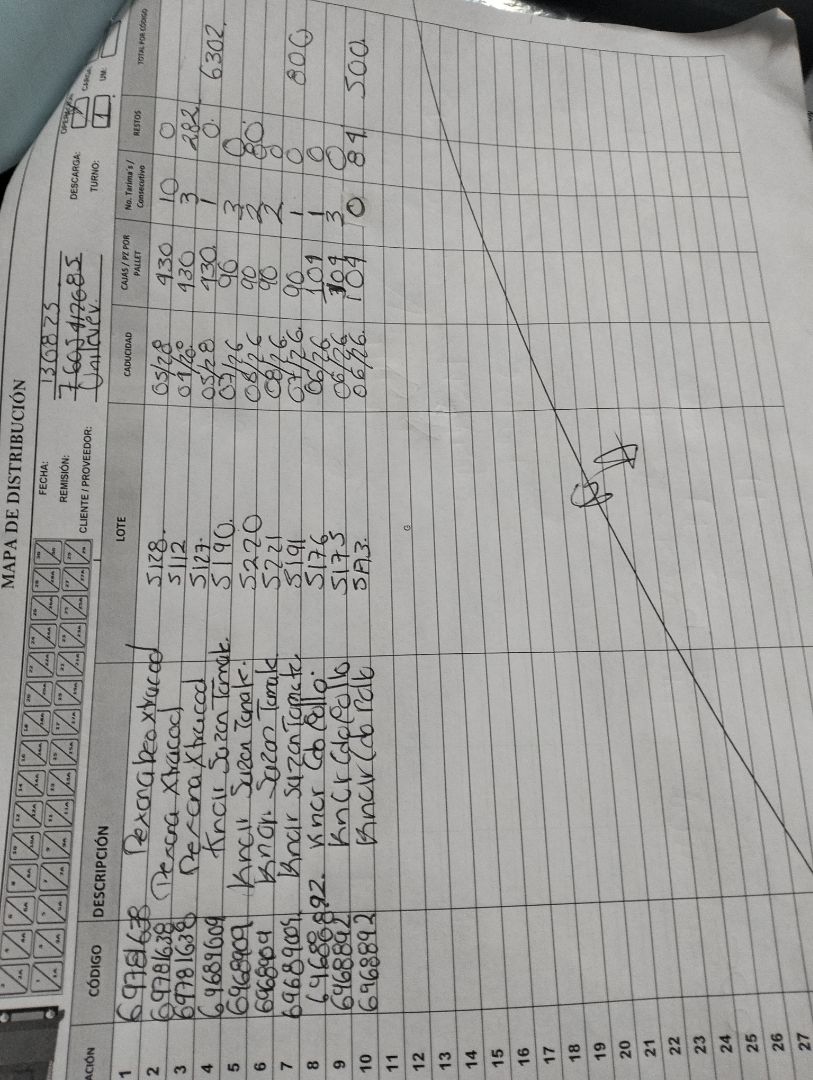 MAPA DE DISTRIBUCIÓN
FECHA: 136825
REMISIÓN: 7605412685
CLIENTE / PROVEEDOR: Unilever.
DESCARGA:
CARGA:
TURNO: 1
UM:
ACIÓN CÓDIGO DESCRIPCIÓN LOTE CADUCIDAD CAJAS / PZ POR PALLET No. Tarima's / Consecutivo RESTOS TOTAL POR CÓDIGO
1 69781638 5128. 05/28 430 10 0
2 69781638 Rexona Xtracool 5112 04/28. 430 3 282.
3 69781638 Rexona Xtracool 5127. 05/28 430. 1 0. 6302.
4 69689009 Knorr Sazon Tomate. 5190. 07/26 90 3 0
5 6968909 Knorr Sazon Tomate. 5220 08/26 90 2 80.
6 6968909 Knorr Sazon Tomate 5221 08/26. 90 2 0
7 69689009 Knorr Sazon Tomate 5191 07/26. 90 1 0 800
8 69688892. Knorr Cdo Pollo. 5176 06/26. 104 1 0
9 6968892 Knorr Cdo Pollo 5175 06/26 104 3 0
10 6968892 Knorr Cdo Pollo 06/26. 104 0 84 500
11
12
13
14
15
16
17
18
19
20
21
22
23
24
25
26
27